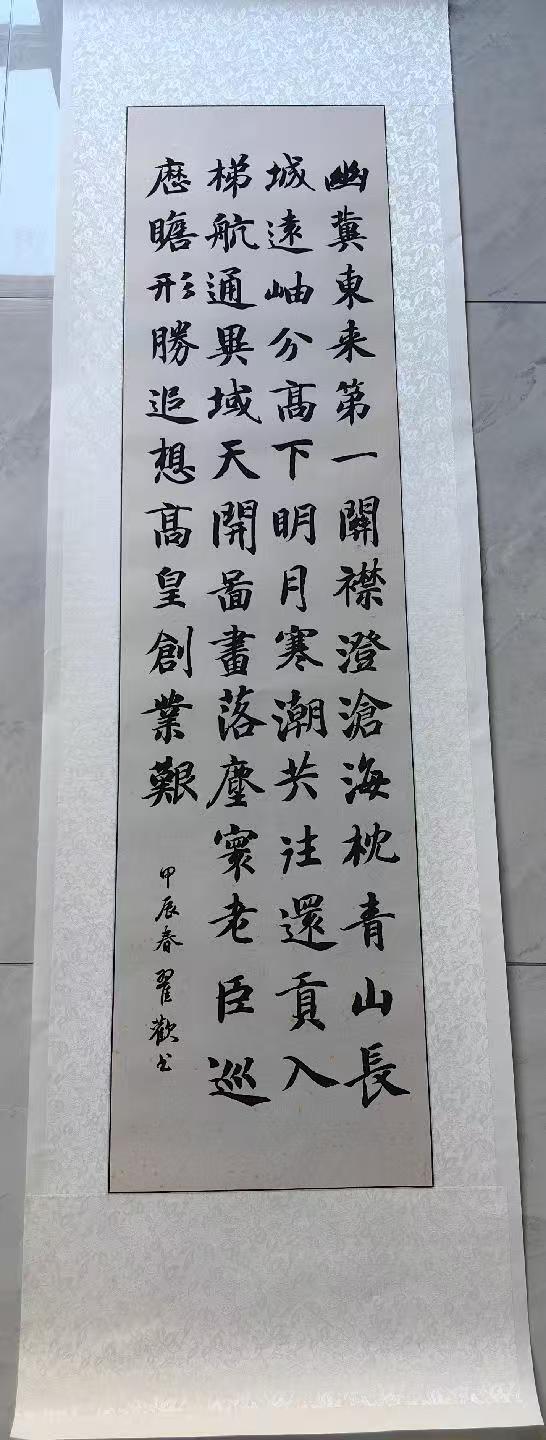 幽冀東来第一關襟澄滄海枕青山長
城遠岫分高下明月寒潮共注還貢入
梯航通異域天開畵畫落塵寰老臣巡
歷瞻形勝追想高皇創業艱
甲辰春翟歡书